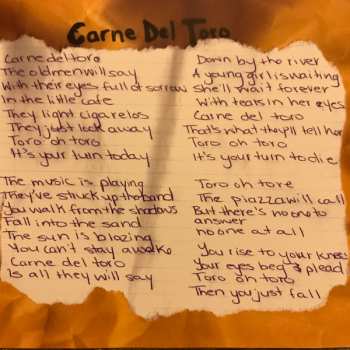 Carne Del Toro
Carne del toro
The old men will say
With their eyes full of sorrow
In the little cafe
They light cigarelos
They just look away
Toro oh toro
It's your turn today
The music is playing
They've struck up the band
You walk from the shadows
Fall into the sand
The sun is blazing
You can't stay awake
Carne del toro
Is all they will say
Down by the river
A young girl is waiting
She'll wait forever
With tears in her eyes
Carne del toro
That's what they'll tell her
Toro oh toro
It's your turn to die
Toro oh tore
The piazza will call
But there's no one to
answer
no one at all
You rise to your knees
Your eyes beg & plead
Toro oh toro
Then you just fall